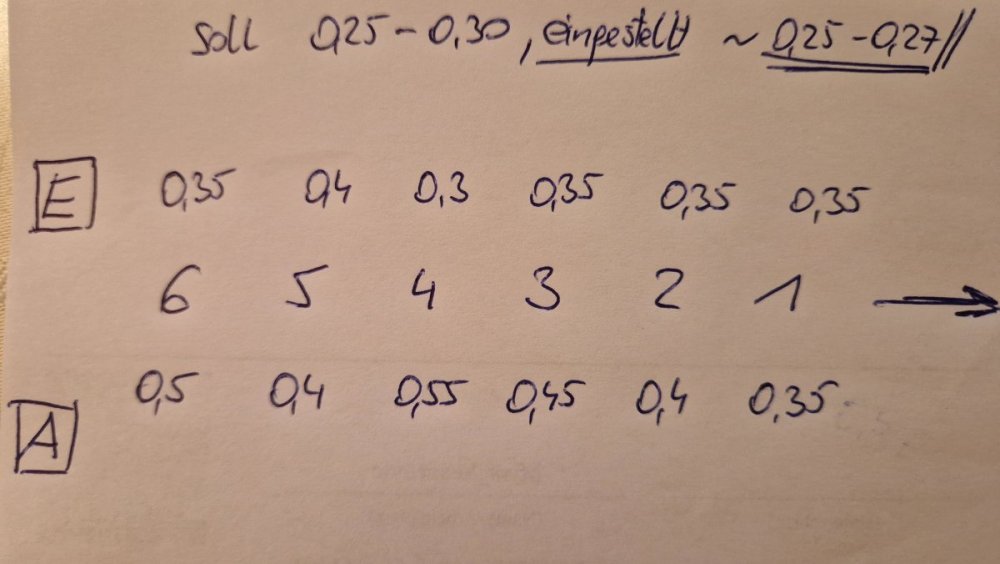 soll 0,25 - 0,30, eingestellt ~ 0,25 - 0,27//
E 0,35 0,4 0,3 0,35 0,35 0,35
6 5 4 3 2 1 →
0,5 0,4 0,55 0,45 0,4 0,35
A